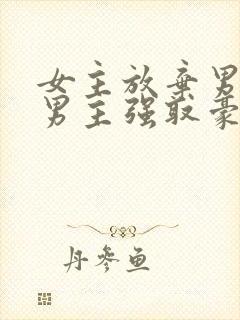 女主放弃男
男主强取豪
丹参鱼